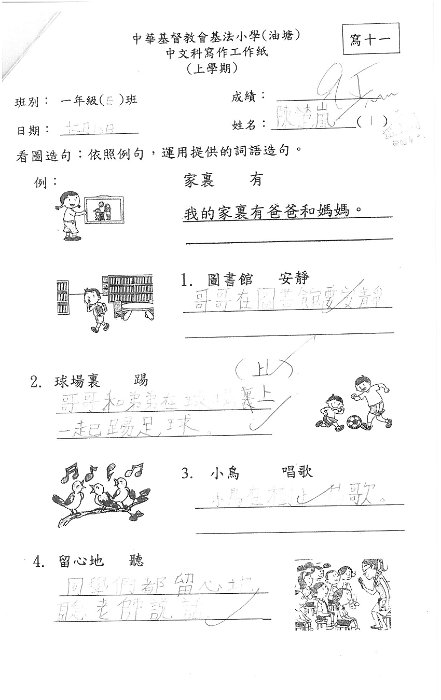 中華基督教會基法小學(油塘)
中文科寫作工作紙
(上學期)
寫十一
班別： 一年級( )班
成績：
日期：
姓名： (1)
看圖造句：依照例句，運用提供的詞語造句。
例：
家裏 有
我的家裏有爸爸和媽媽。
1. 圖書館 安靜
哥哥在圖書館 安靜
(上)
2. 球場裏 踢
哥哥和弟弟在球場裏上
一起踢足球。
3. 小鳥 唱歌
小鳥在 上 歌。
4. 留心地 聽
同學們都留心地
聽老師說話